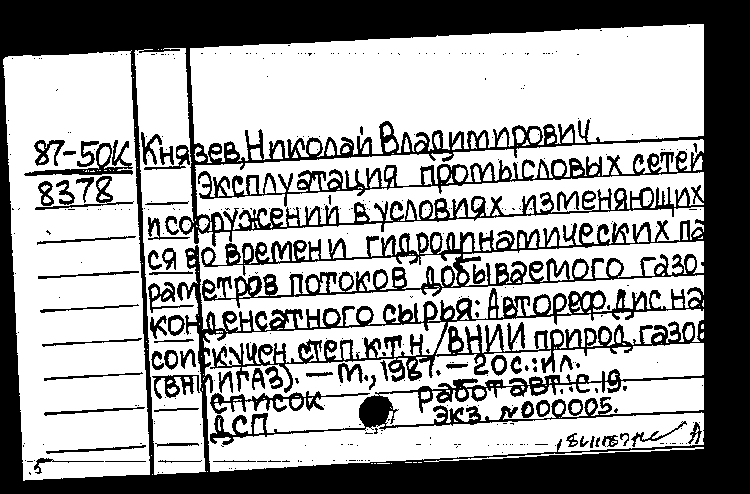 87-50К Князев, Николай Владимирович.
8378 Эксплуатация промысловых сетей
и сооружений в условиях изменяющих
ся во времени гидродинамических па
раметров потоков добываемого газо-
конденсатного сырья: Автореф. дис. на
соиск. учен. степ. к.т.н. / ВНИИ природ. газов
(ВНИИГАЗ). — М., 1987. — 20 с.: ил.
Список работ авт.: с. 19.
ДСП. Экз. №000005.
5